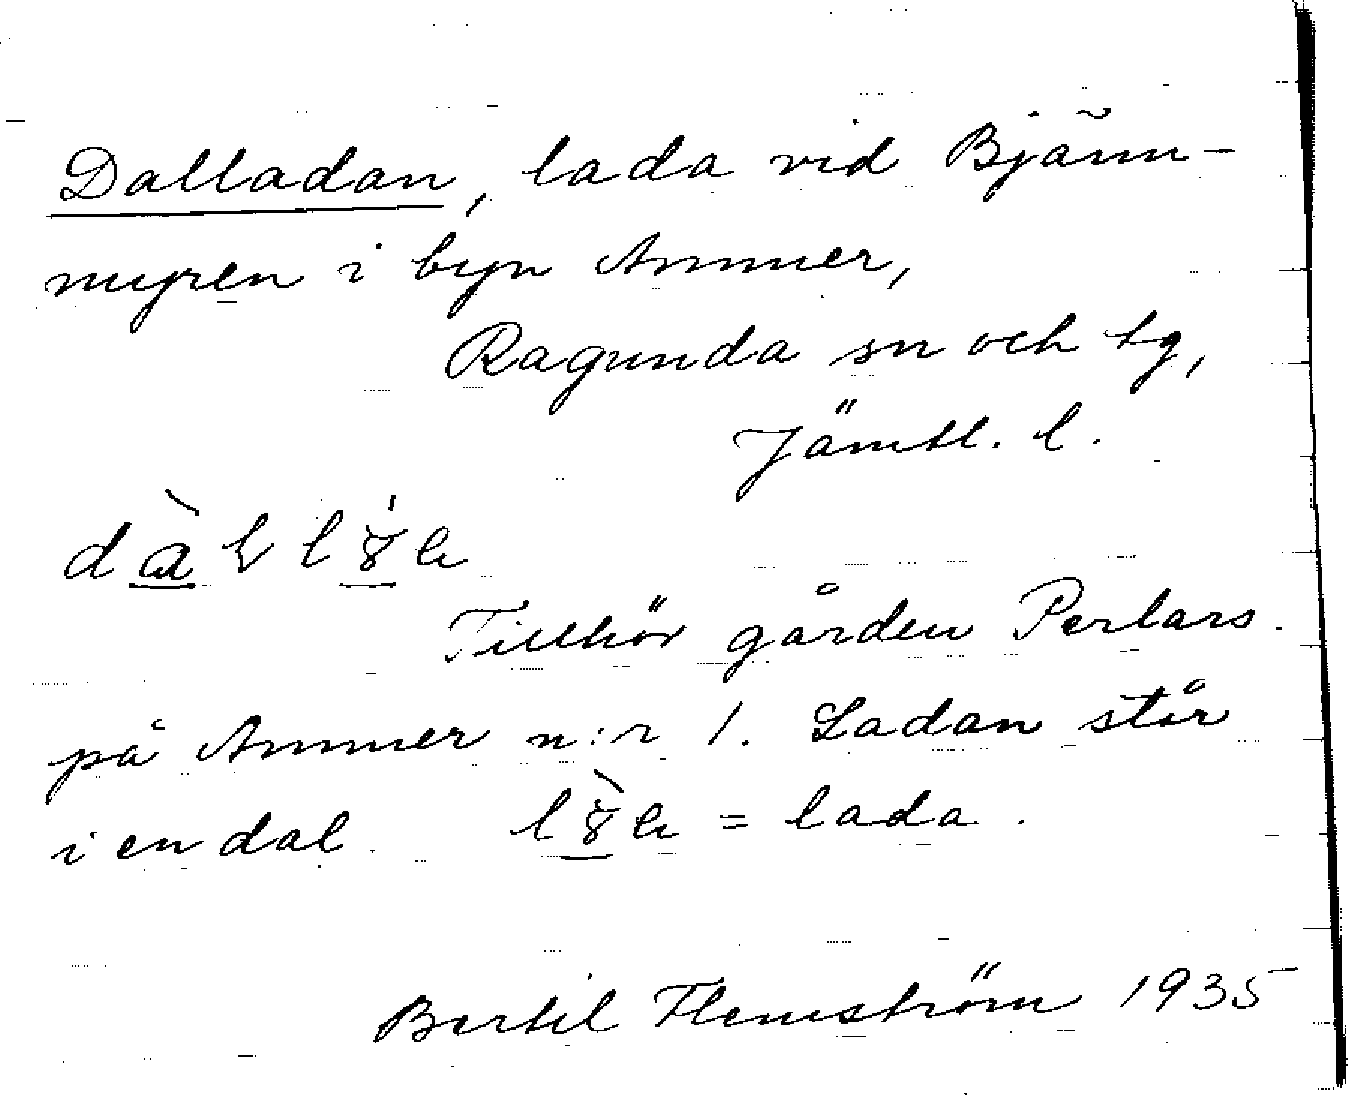 Dalladan, lada vid Bjänn-
myren i byn Ammer,
Ragunda sn och tg,
Jämtl. l.
Tillhör gården Perlars
på Ammer n:r 1. Ladan står
i en dal. = lada.
Bertil Flemström 1935